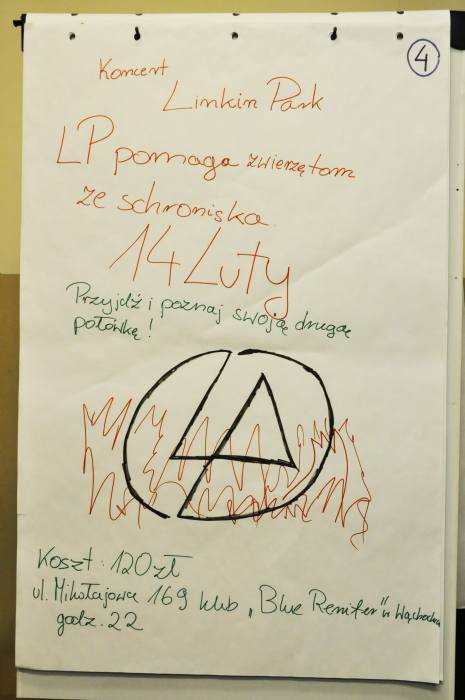 4
Koncert
Linkin Park
LP pomaga zwierzętom
ze schroniska
14 Luty
Przyjdź i poznaj swoją drugą
połówkę!
Koszt: 120zł
ul. Mikołajowa 169 klub „Blue
godz. 22